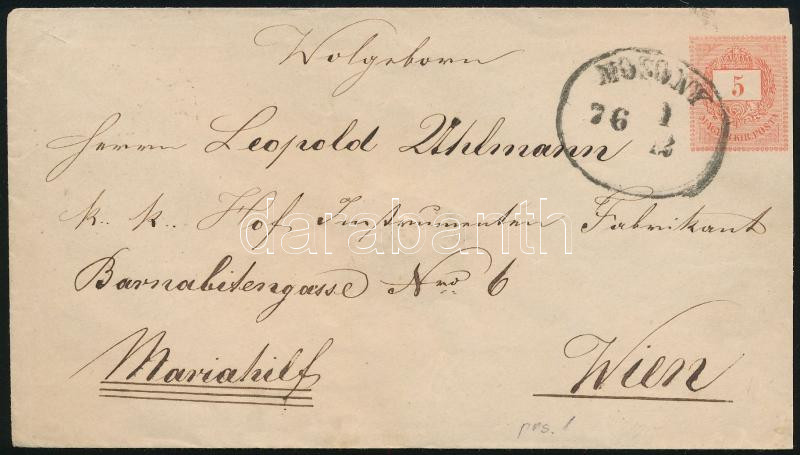 Wolgeborn
Herrn Leopold Uhlmann
k. k. Hof Instrumenten Fabrikant
Barnabitengasse Nro 6
Mariahilf
Wien
MOSONY
76 1
12
5
MAGY. KIR. POSTA
darabanth
prs. /